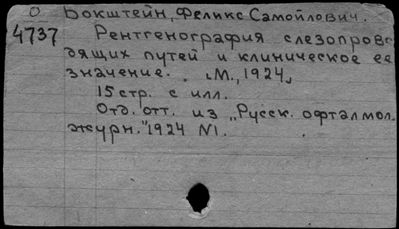 О Бокштейн, Феликс Самойлович.
4737 Рентгенография слезопрово
дящих путей и клиническое ее
значение. М., 1924,
15 стр. с илл.
Отд. отт. из „Русск. офталмол.
журн." 1924 №1.